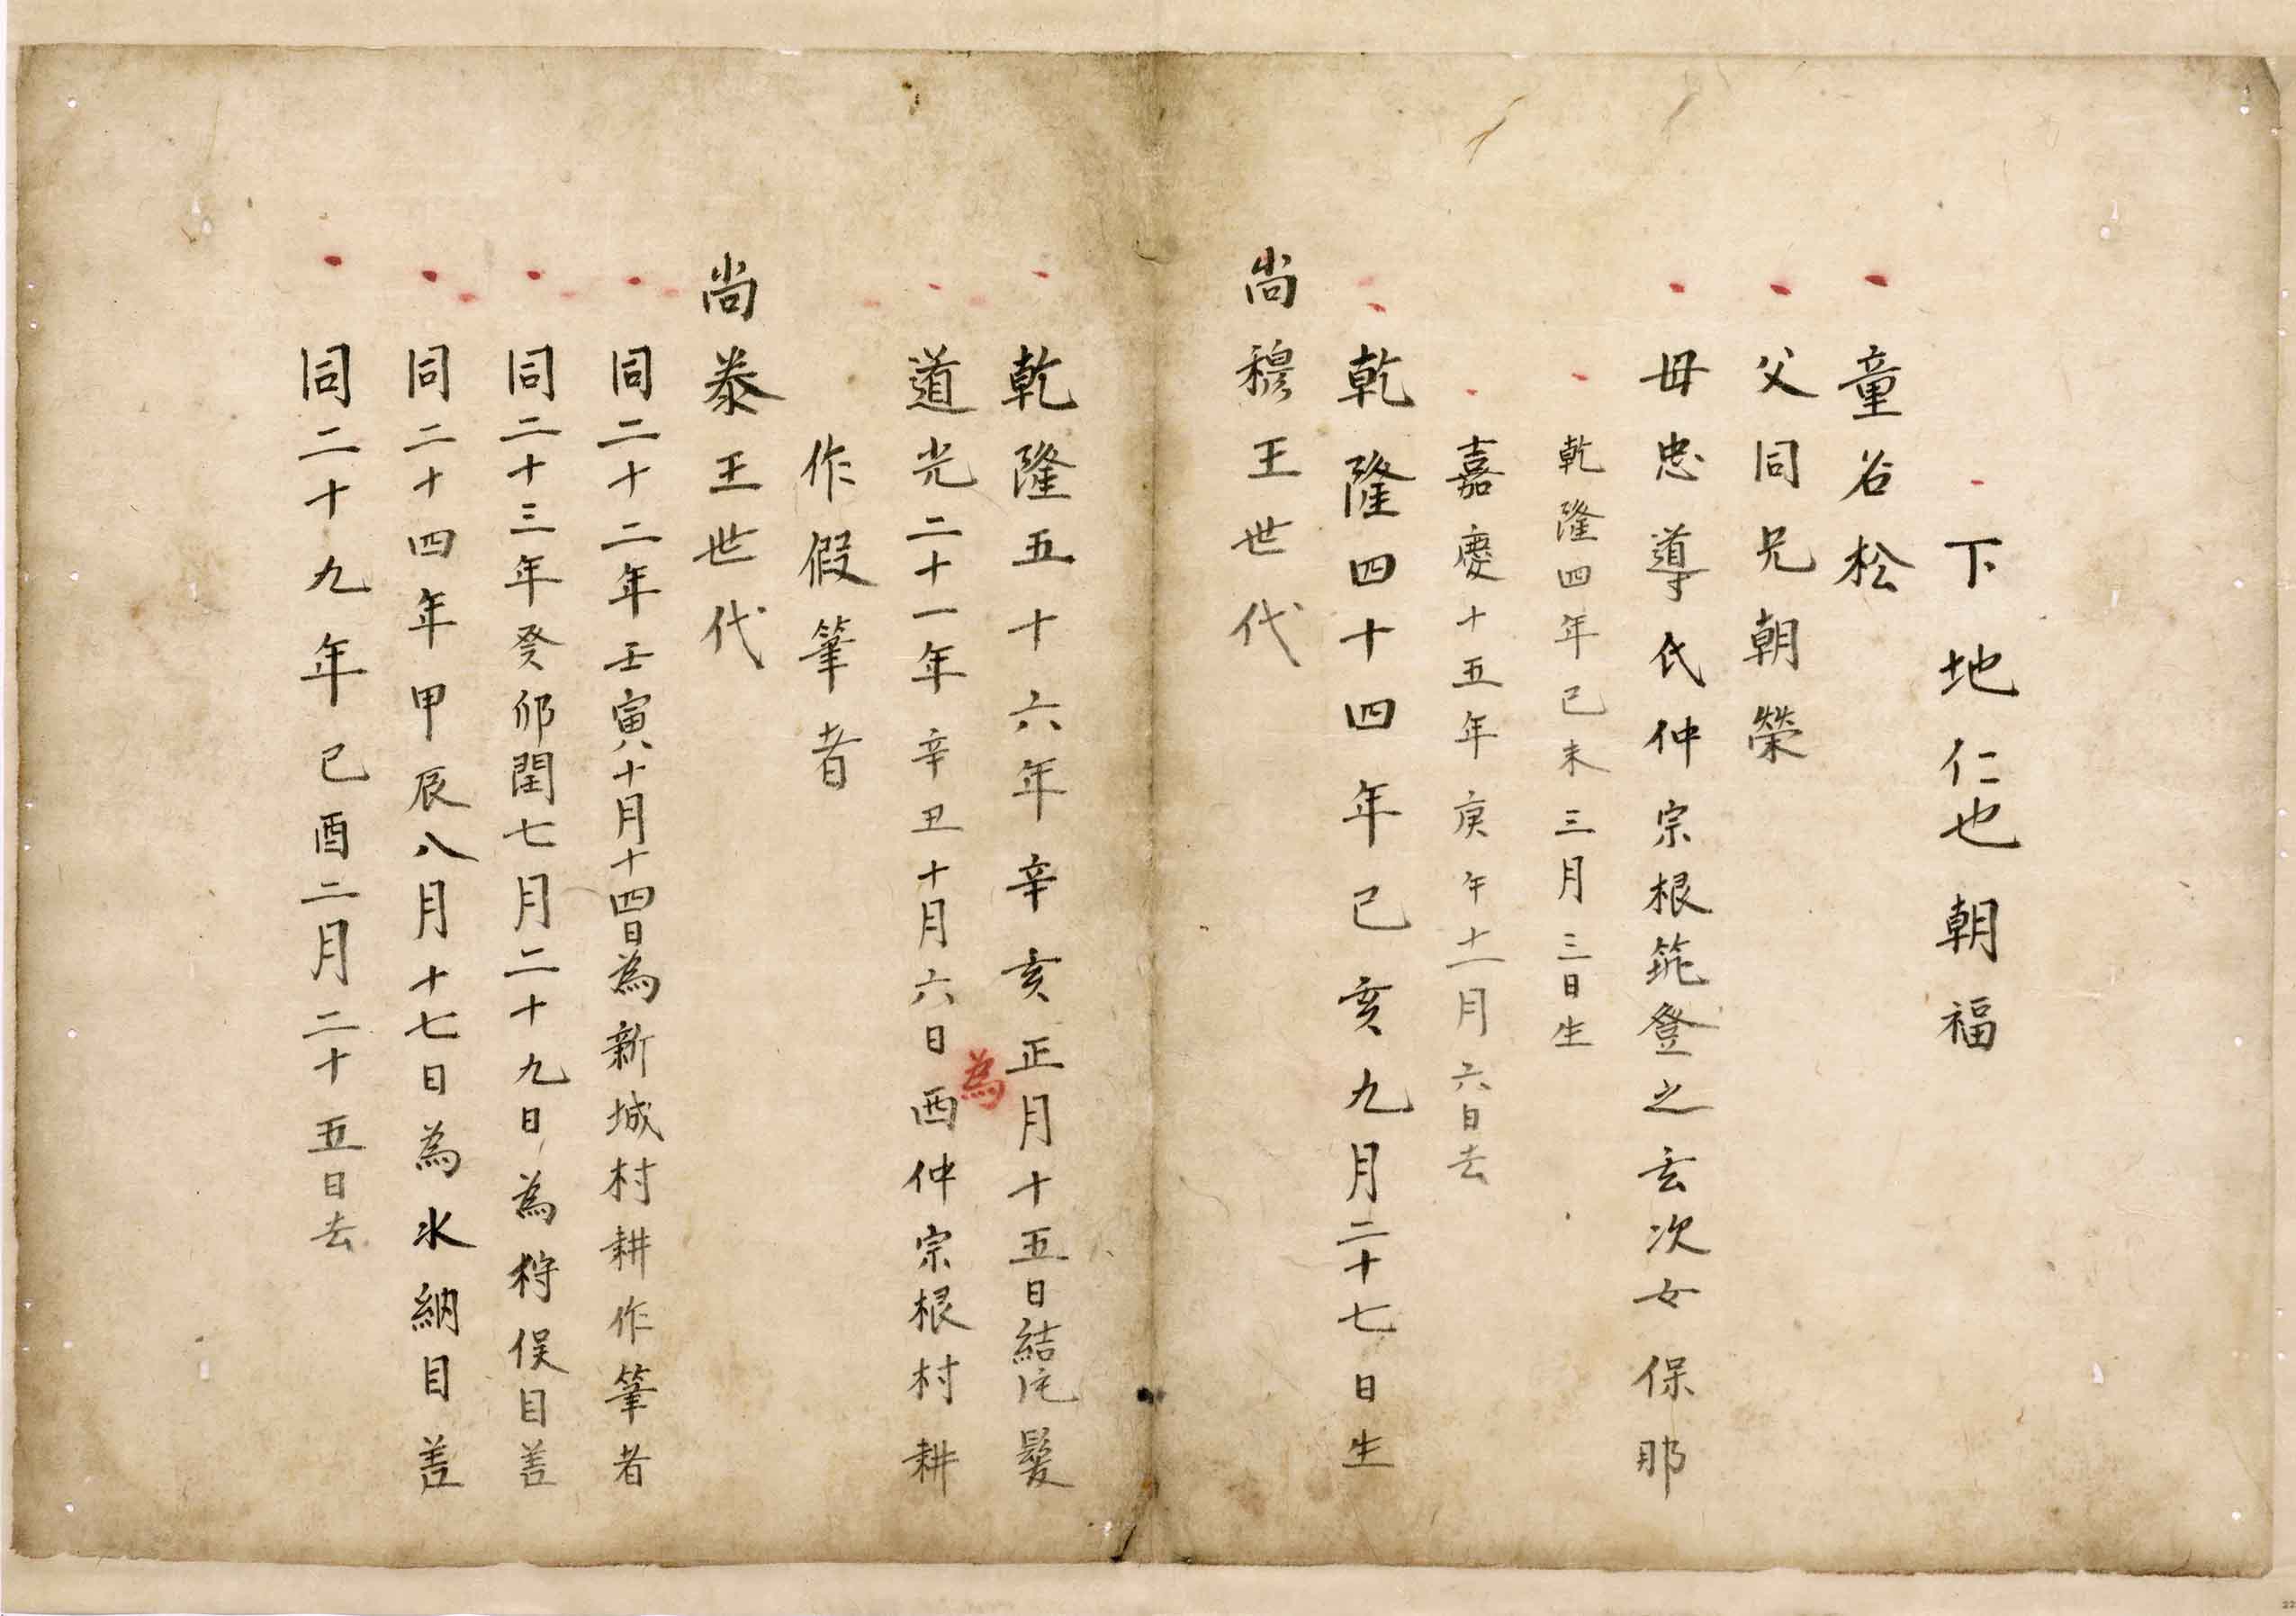 下地仁也朝福
童名松
父同兄朝榮
母忠導氏仲宗根筑登之玄次女保那
乾隆四年己未三月三日生
嘉慶十五年庚午十一月六日去
乾隆四十四年己亥九月二十七日生
尚穆王世代
乾隆五十六年辛亥正月十五日結片髮
道光二十一年辛丑十月六日為西仲宗根村耕
作假筆者
尚泰王世代
同二十二年壬寅十月十四日為新城村耕作筆者
同二十三年癸卯閏七月二十九日為狩俣目差
同二十四年甲辰八月十七日為水納目差
同二十九年己酉二月二十五日去